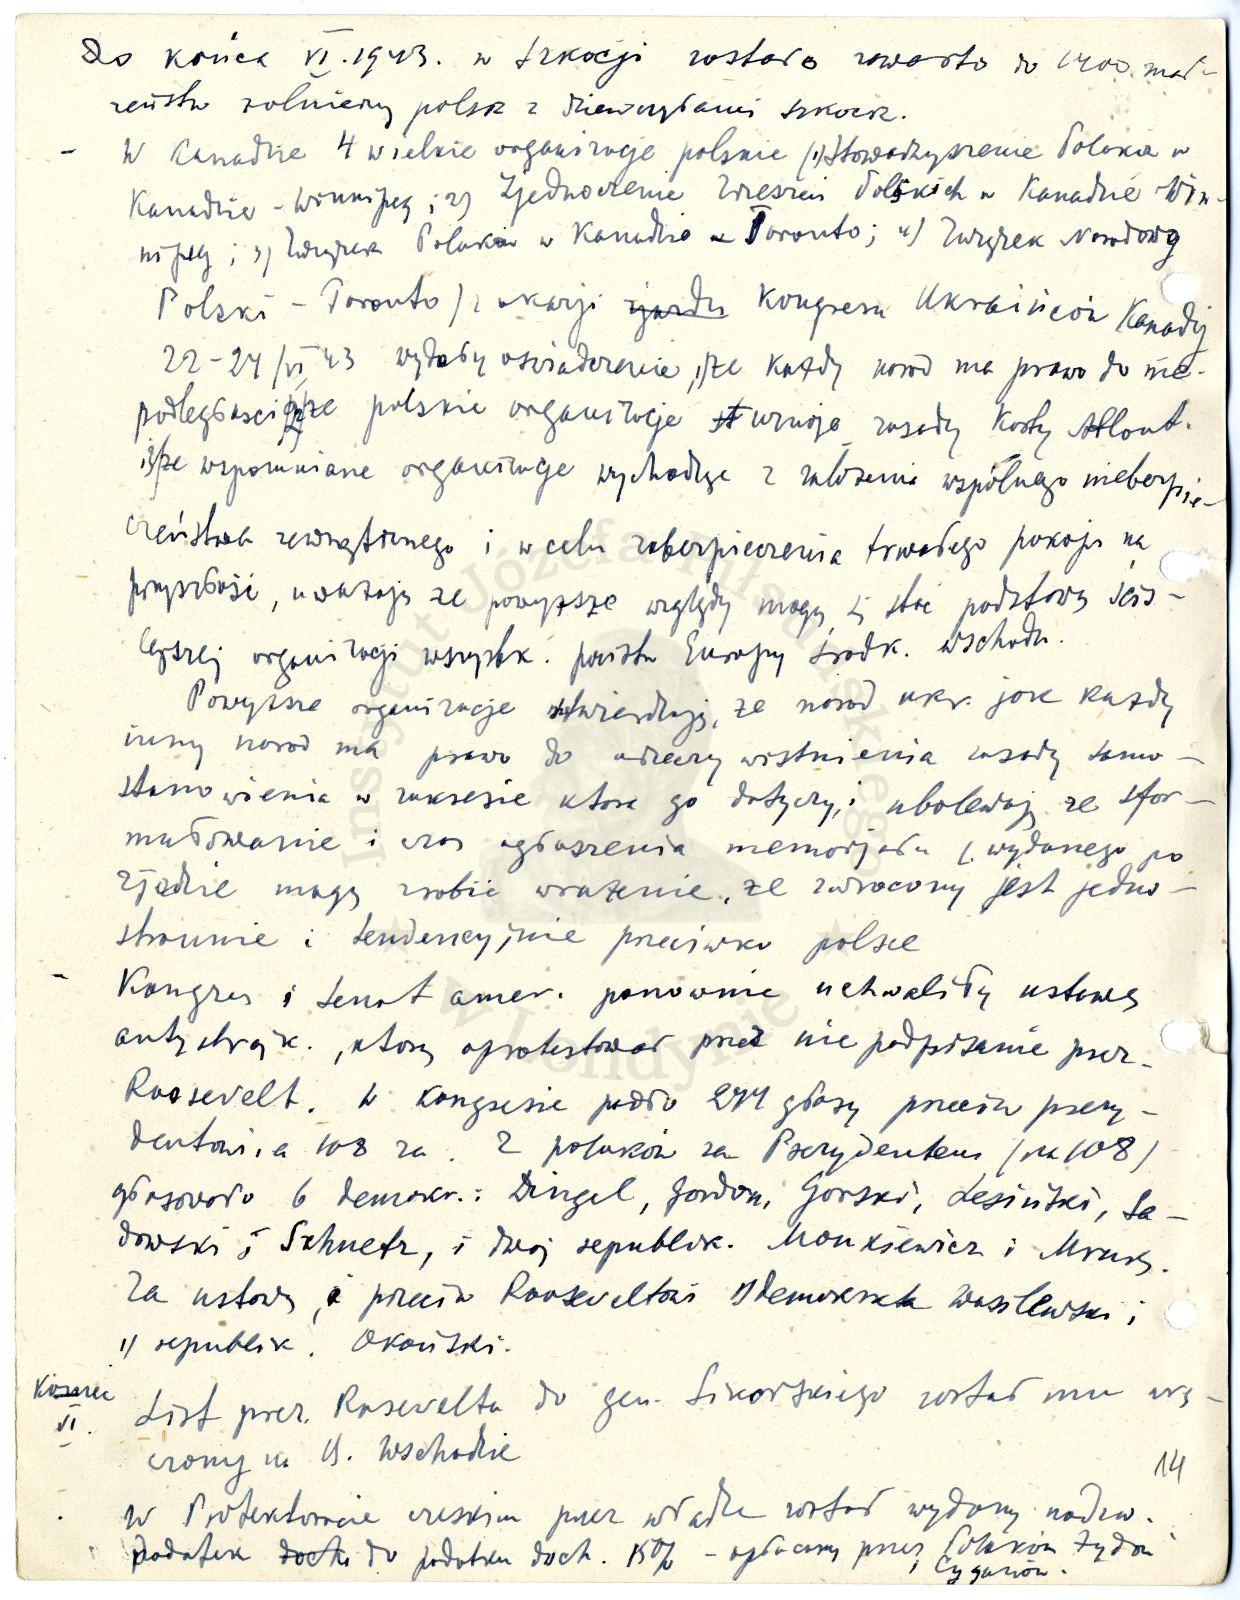 Do końca VI.1943. w Szkocji zostało zawarto do 1700 mał-
żeństw żołnierzy polsk z dziewczętami szkock.
- W Kanadzie 4 wielkie organizacje polskie (1) Stowarzyszenie Polaków w
Kanadzie - Winnipeg; 2) Zjednoczenie Zrzeszeń Polskich w Kanadzie Win-
nipeg; 3) Związek Polaków w Kanadzie w Toronto; 4) Związek Narodowy
Polski - Toronto) z okazji zjazdu Kongresu Ukraińców Kanady
22-24/VI 43 wydały oświadczenie, 1) że każdy naród ma prawo do nie-
podległości 2) że polskie organizacje uznają zasady Karty Atlant.
i 3) że wspomniane organizacje wychodząc z założenia wspólnego niebezpie-
czeństwa zewnętrznego i w celu zabezpieczenia trwałego pokoju na
przyszłość, uważają że powyższe względy mogą się stać podstawą ściś-
lejszej organizacji wszystk. państw Europy Środk. wschodn.
Powyższe organizacje stwierdzają, że naród ukr. jak każdy
inny naród ma prawo do urzeczywistnienia zasady samo-
stanowienia w zakresie które go dotyczy, i ubolewają że sfor-
mułowanie i czas ogłoszenia memorjału (. wydanego po
zjeździe mogą zrobić wrażenie, że zwrócony jest jedno-
stronnie i tendencyjnie przeciwko polsce
- Kongres i Senat amer. ponownie uchwaliły ustawę
antystrajk., którą oprotestował przez nie podpisanie prez.
Roosevelt. W kongresie padło 244 głosy przeciw prezy-
dentowi, a 108 za. Z polaków za Prezydentem (na 108)
głosowało 6 demokr.: Dingel, Gordon, Gorski, Lesiński, Sa-
dowski i Schuetz, i dwaj republik. Monkiewicz i Mruk.
Za ustawą i przeciw Rooseveltowi 1) demokrata Wasilewski i
1) republik. Okoński.
Koniec
VI.
List prez. Roosevelta do gen. Sikorskiego został mu wrę-
czony na B. Wschodzie
14
W Protektoracie czeskim przez władze został wydany nadzw.
podatek doch do podatku doch. 15% - opłacany przez Polaków Żydów
i Cyganów.